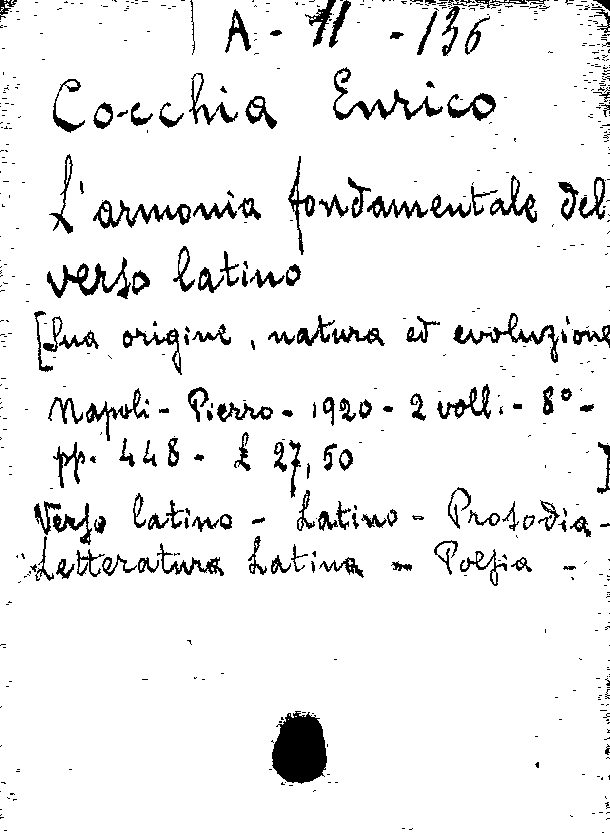 A - 11 - 136
Cocchia Enrico
L'armonia fondamentale del
verso latino
[Sua origine, natura ed evoluzione
Napoli - Pierro - 1920 - 2 voll. - 8° -
pp. 448 - £ 27,50 ]
Verso latino - Latino - Prosodia -
Letteratura Latina - Poesia -